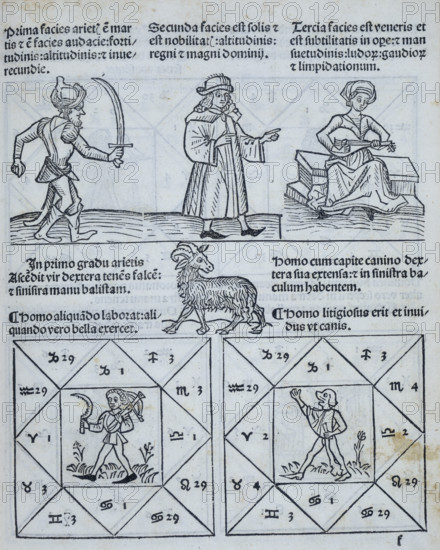 Prima facies arietꝭ ē mar
tis ⁊ ē facies audacie:forti
tudinis:altitudinis:⁊ inue
recundie.
Secunda facies est solis ⁊
est nobilitatꝭ:altitudinis:
regni ⁊ magni dominij.
Tercia facies est veneris et
est subtilitatis in ope:⁊ man
suetudinis:ludoꝝ:gaudioꝝ
⁊ limpidationum.
In primo gradu arietis
Ascēdit vir dextera tenēs falcē:
⁊ sinistra manu balistam.
Homo cum capite canino dex
tera sua extensa:⁊ in sinistra ba
culum habentem.
⁋Homo aliquādo laborat:ali
quando vero bella exercet.
⁋Homo litigiosus erit et inui
dus vt canis.
♑ 29 ♑ 1 ♐ 3
♒ 29 ♏ 3
♈ 1 ♎ 1
♉ 3 ♌ 29
♊ 3 ♋ 1 ♋ 29
♑ 29 ♑ 1 ♐ 3
♒ 29 ♏ 4
♈ 2 ♎ 2
♉ 4 ♌ 29
♊ 3 ♋ 1 ♋ 29
f
PHOTO12